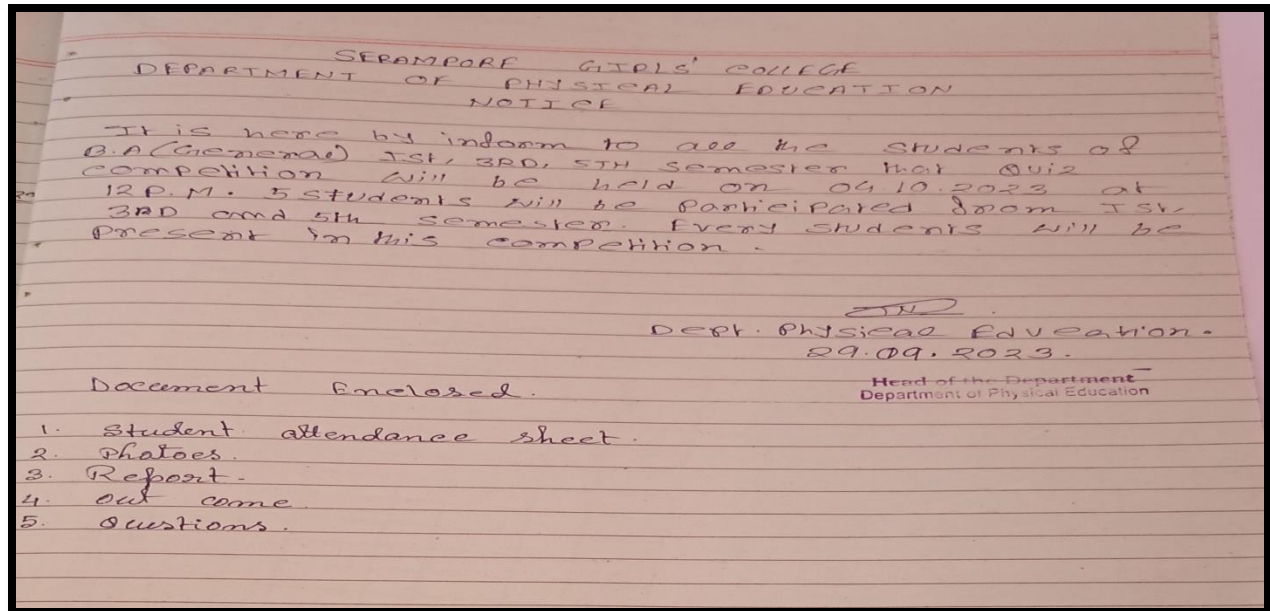 SERAMPORE GIRLS' COLLEGE
DEPARTMENT OF PHYSICAL EDUCATION
NOTICE
It is here by inform to all the students of
B.A (General) Ist, 3RD, 5TH semester that Quiz
competition will be held on 04.10.2023 at
12 P.M. 5 students will be participated from Ist,
3RD and 5th semester. Every students will be
present in this competition.
Dept. Physical Education.
29.09.2023.
Head of the Department
Department of Physical Education
Document Enclosed.
1. Student attendance sheet.
2. Photoes.
3. Report-
4. Out come
5. Questions.